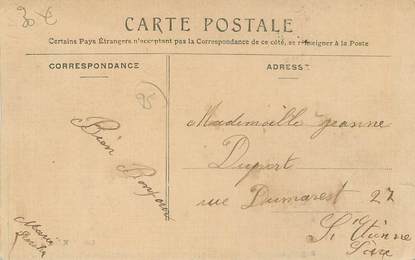 30 €
CARTE POSTALE
Certains Pays Étrangers n'acceptent pas la Correspondance de ce côté, se renseigner à la Poste
CORRESPONDANCE
ADRESSE
Bien
Bonjour
Maria
Mademoiselle Jeanne
Duport
rue Dumarest 27
St Etienne
Loire